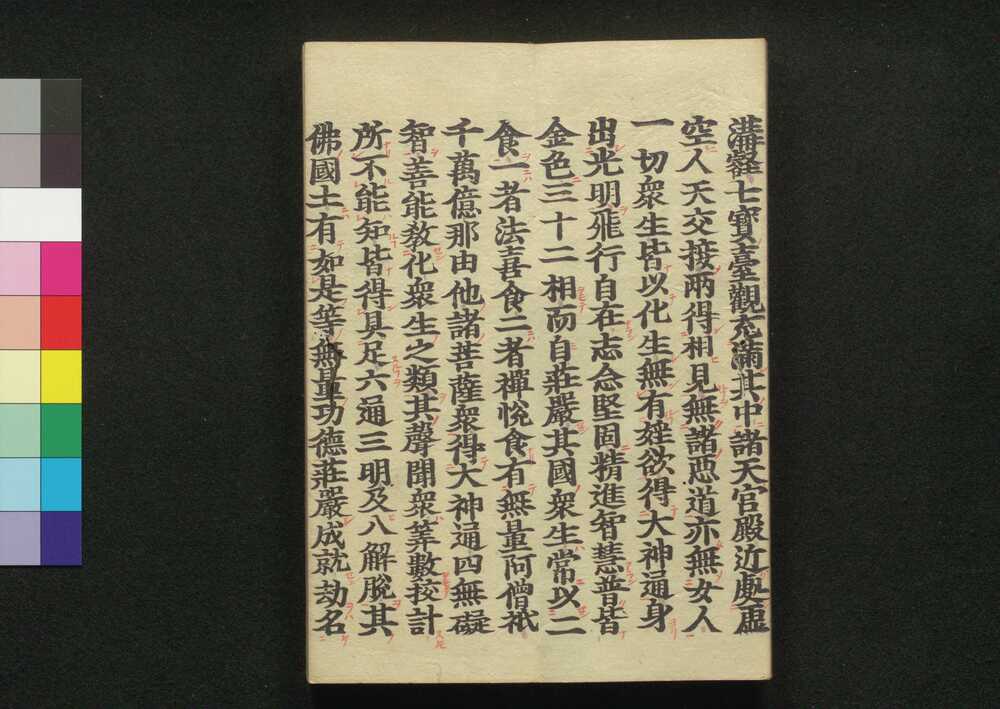 溝壑七寶臺觀充滿其中諸天宮殿近處虛
空人天交接兩得相見無諸惡道亦無女人
一切衆生皆以化生無有婬欲得大神通身
出光明飛行自在志念堅固精進智慧普皆
金色三十二相而自莊嚴其國衆生常以二
食一者法喜食二者禪悅食有無量阿僧祇
千萬億那由他諸菩薩衆得大神通四無礙
智善能教化衆生之類其聲聞衆筭數挍計
所不能知皆得具足六通三明及八解脫其
佛國土有如是等無量功德莊嚴成就劫名